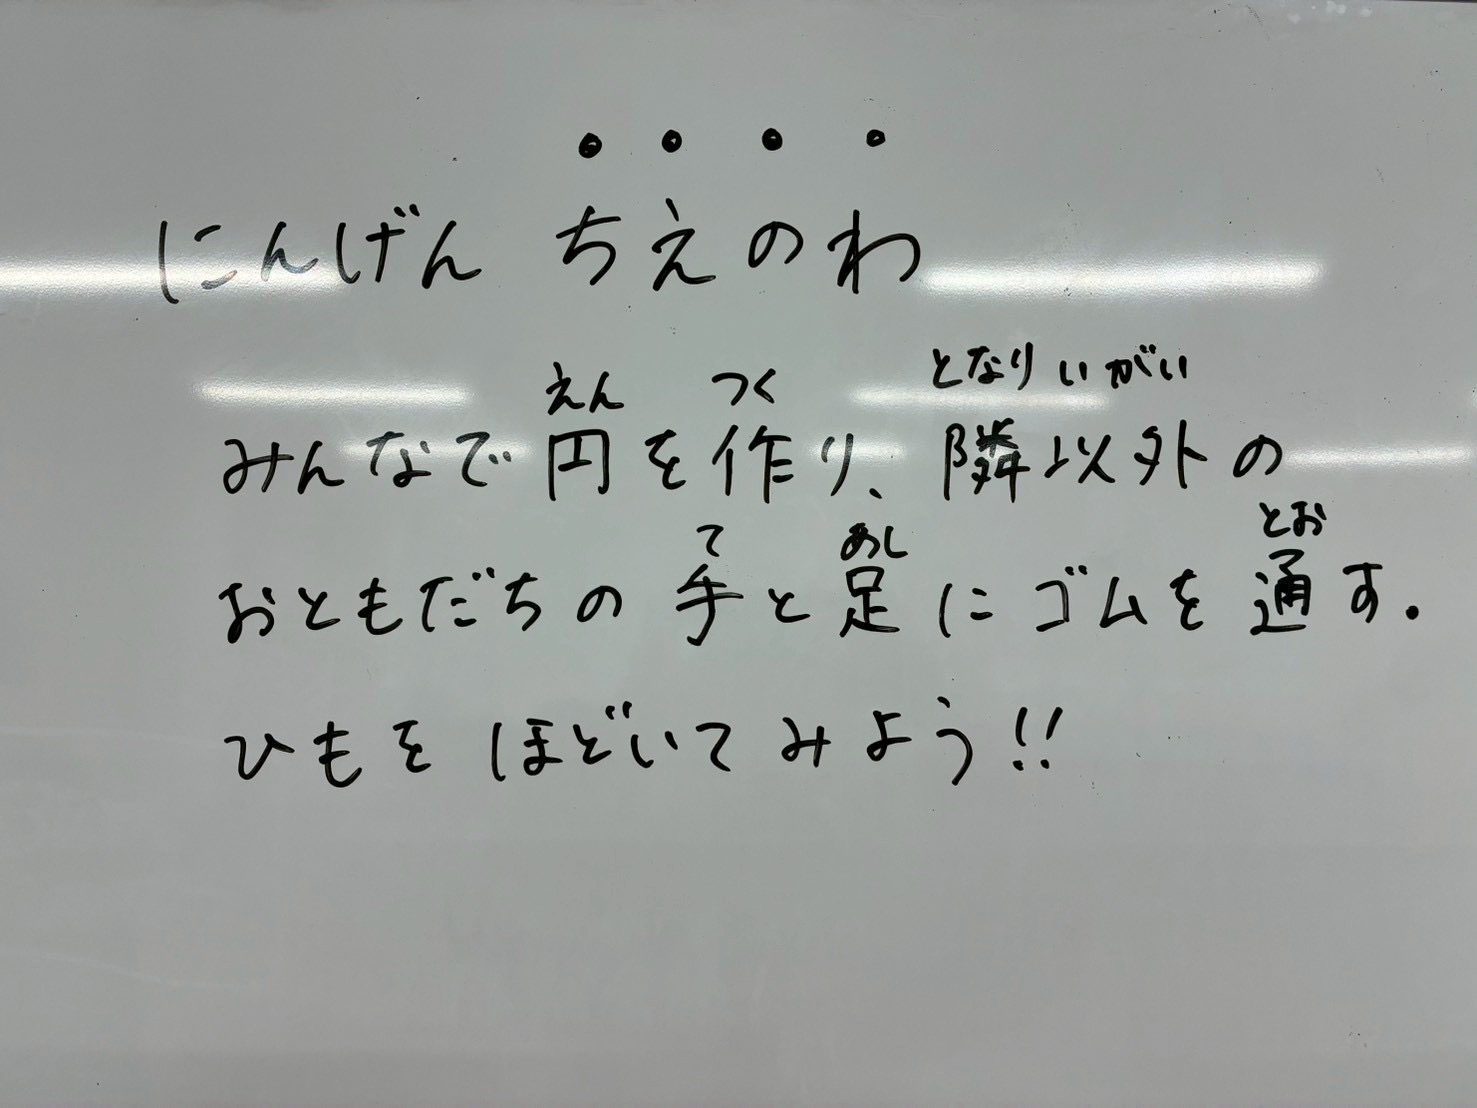 にんげん ちえのわ
みんなで円を作り、隣以外の
おともだちの手と足にゴムを通す.
ひもをほどいてみよう!!
えん つく となり いがい
て あし とお